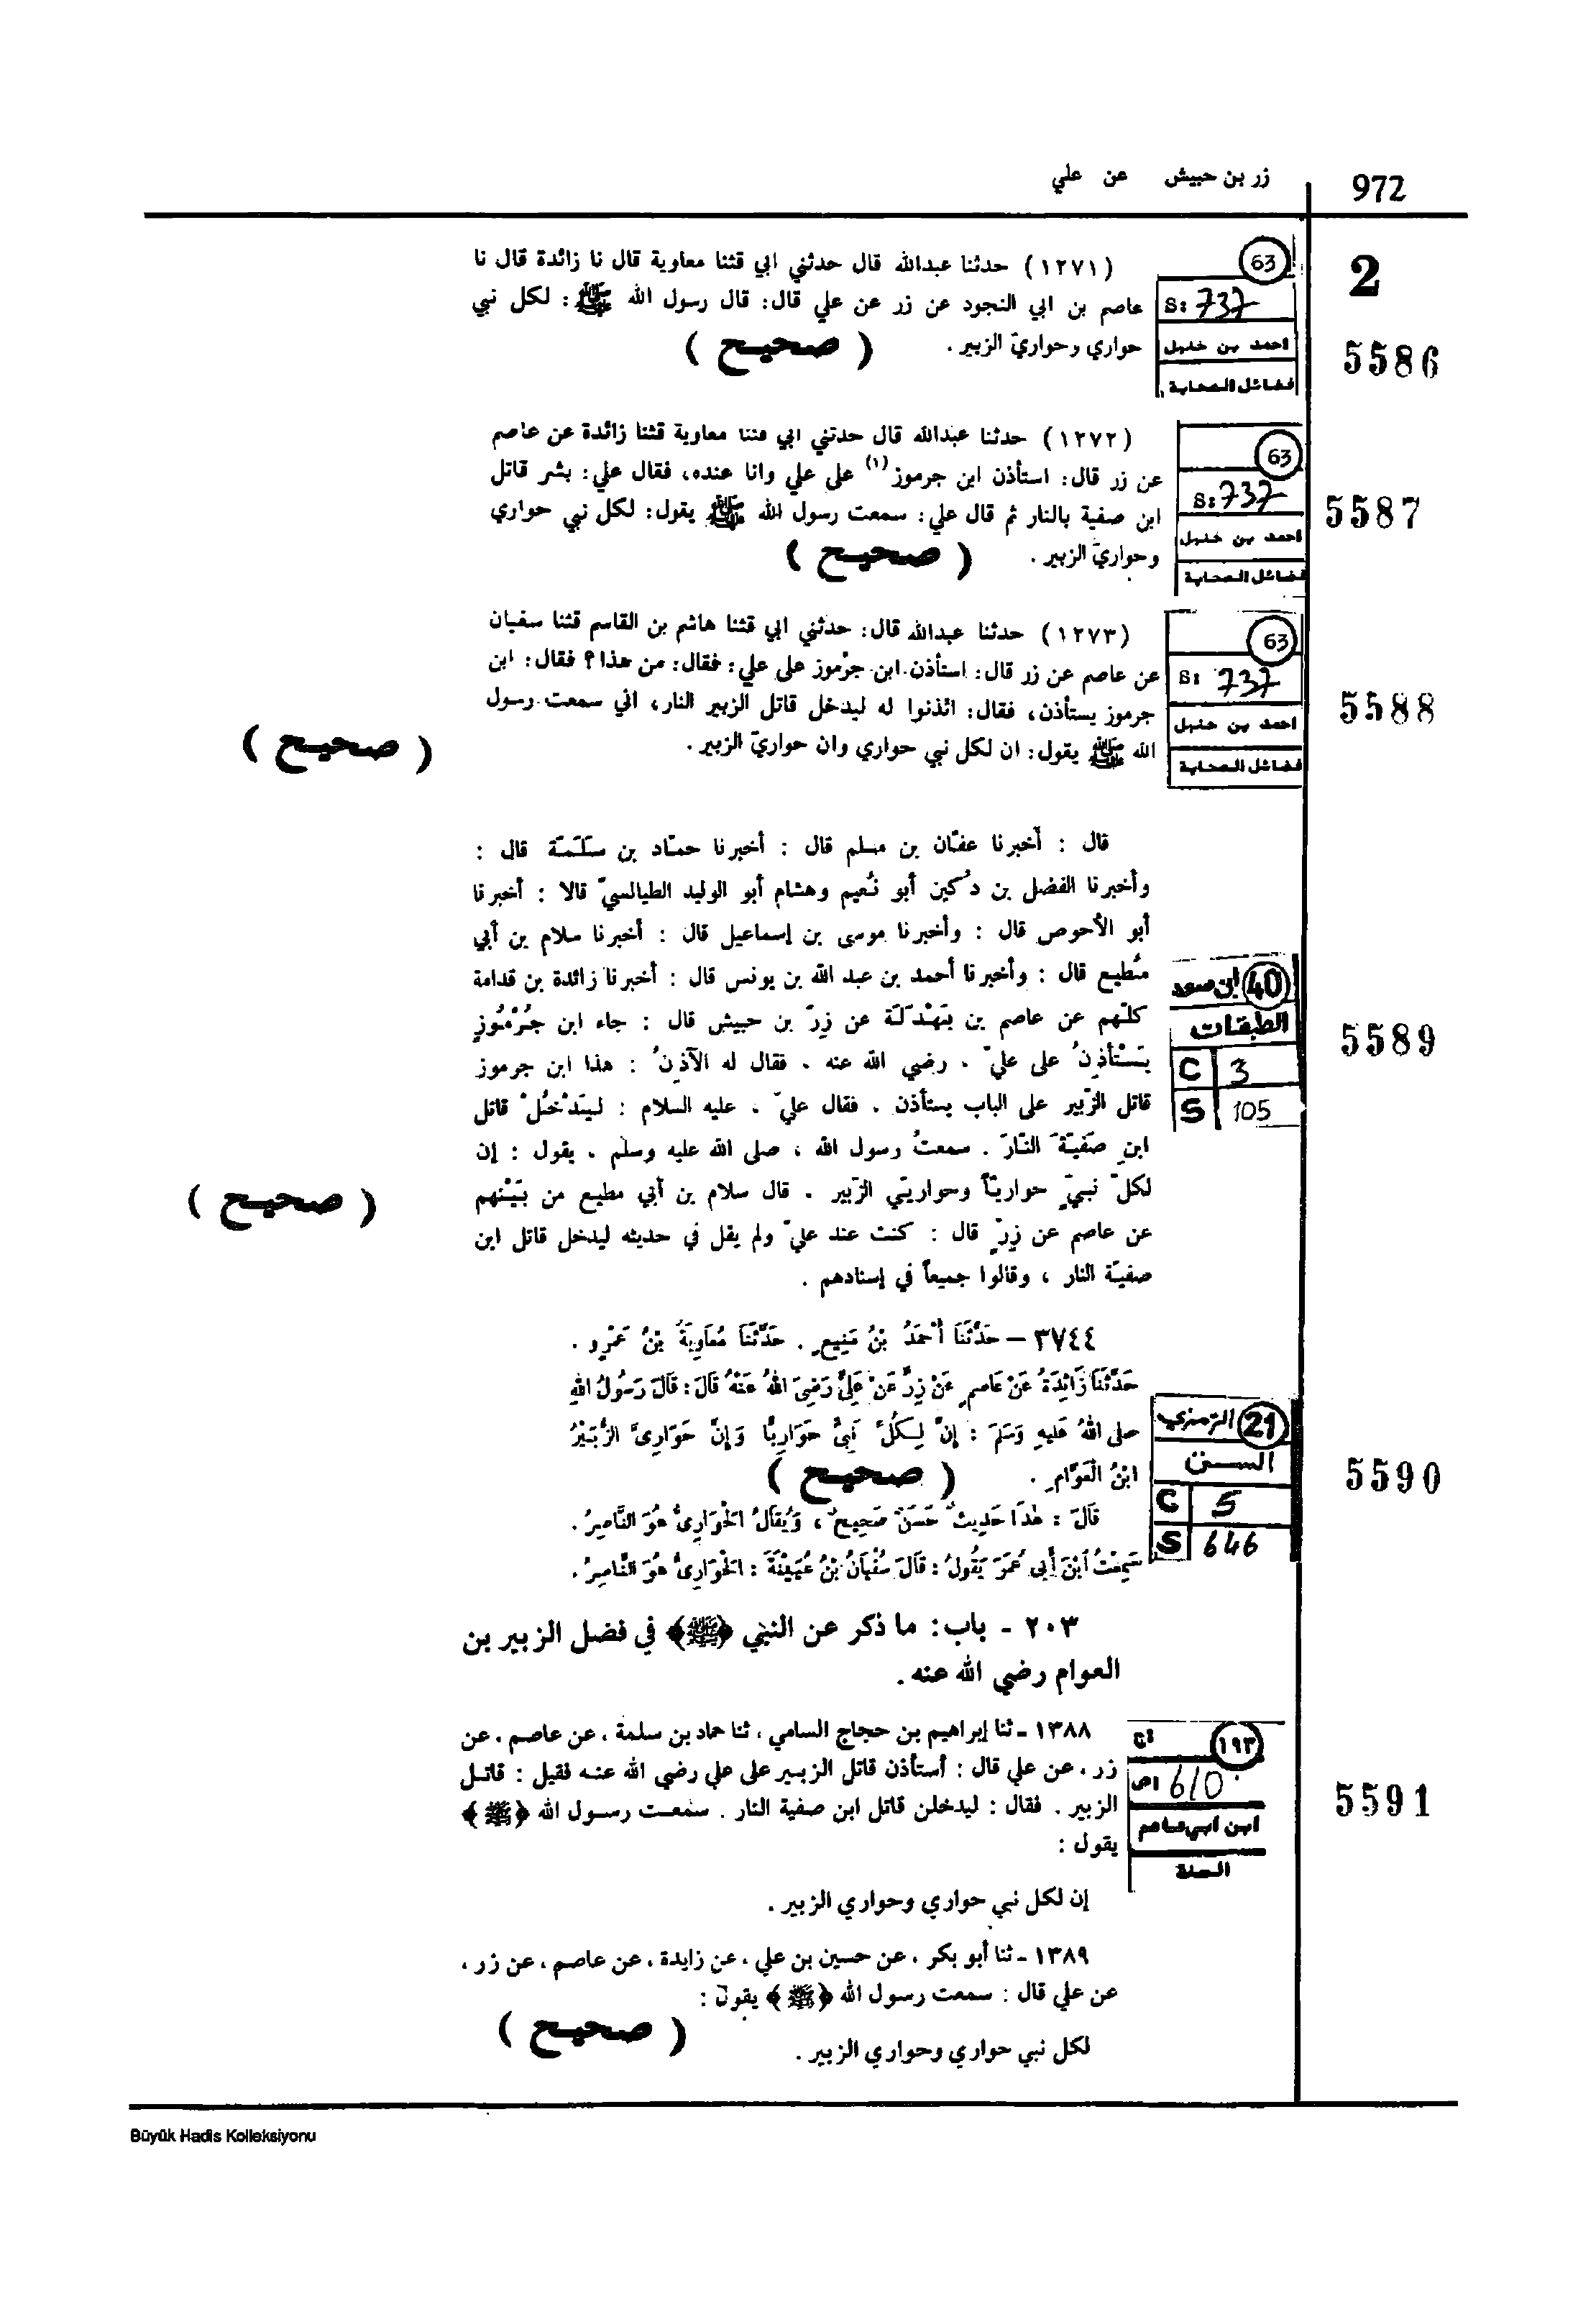 زر بن حبيش عن علي
972
2
63
S: 737
احمد بن حنبل
فضائل الصحابة
5586
(١٢٧١) حدثنا عبدالله قال حدثني ابي قثنا معاوية قال نا زائدة قال نا
عاصم بن ابي النجود عن زر عن علي قال: قال رسول الله ﷺ: لكل نبي
حواري وحواريّ الزبير.
( صحيح )
63
S: 737
احمد بن حنبل
فضائل الصحابة
5587
(١٢٧٢) حدثنا عبدالله قال حدثني ابي قثنا معاوية قثنا زائدة عن عاصم
عن زر قال: استأذن ابن جرموز(١) على علي وانا عنده، فقال علي: بشر قاتل
ابن صفية بالنار ثم قال علي: سمعت رسول الله ﷺ يقول: لكل نبي حواري
وحواريّ الزبير.
( صحيح )
63
S: 737
احمد بن حنبل
فضائل الصحابة
5588
(١٢٧٣) حدثنا عبدالله قال: حدثني ابي قثنا هاشم بن القاسم قثنا سفيان
عن عاصم عن زر قال: استأذن ابن جرْموز على علي: فقال: من هذا؟ فقال: ابن
جرموز يستأذن، فقال: ائذنوا له ليدخل قاتل الزبير النار، اني سمعت رسول
الله ﷺ يقول: ان لكل نبي حواري وان حواريّ الزبير.
( صحيح )
40 ابن سعد
الطبقات
C 3
S 105
5589
قال : أخبرنا عفّان بن مسلم قال : أخبرنا حمّاد بن سَلَمَة قال :
وأخبرنا الفضل بن دُكين أبو نُعيم وهشام أبو الوليد الطيالسيّ قالا : أخبرنا
أبو الأحوص قال : وأخبرنا موسى بن إسماعيل قال : أخبرنا سلام بن أبي
مُطيع قال : وأخبرنا أحمد بن عبد الله بن يونس قال : أخبرنا زائدة بن قدامة
كلّهم عن عاصم بن بَهْدَلَة عن زِرّ بن حبيش قال : جاء ابن جُرْمُوزٍ
يَسْتأذِنُ على عليّ ، رضي الله عنه ، فقال له الآذِنُ : هذا ابن جرموز
قاتل الزّبير على الباب يستأذن . فقال عليّ ، عليه السلام : لِيَدْخُلْ قاتل
ابنِ صَفيّةَ النّارَ . سمعتُ رسول الله ، صلى الله عليه وسلم ، يقول : إن
لكلّ نبيّ حواريّاً وحواريّي الزّبير . قال سلام بن أبي مطيع من بَيْنهم
عن عاصم عن زِرّ قال : كنت عند عليّ ولم يقل في حديثه ليدخل قاتل ابن
صفيّة النار ، وقالوا جميعاً في إسنادهم .
( صحيح )
21 الترمزي
السنن
C 5
S 646
5590
٣٧٤٤ – حَدَّثَنَا أَحْمَدُ بْنُ مَنِيعٍ . حَدَّثَنَا مُعَاوِيَةُ بْنُ عَمْرٍو .
حَدَّثَنَا زَائِدَةُ عَنْ عَاصِمٍ عَنْ زِرٍّ عَنْ عَلِيٍّ رَضِيَ اللهُ عَنْهُ قَالَ : قَالَ رَسُولُ اللهِ
صلى اللهُ عَلَيهِ وَسَلَّمَ : إِنَّ لِكُلِّ نَبِيٍّ حَوَارِيًّا وَإِنَّ حَوَارِيَّ الزُّبَيْرُ
ابْنُ الْعَوَّامِ .
( صحيح )
قَالَ : هٰذَا حَدِيثٌ حَسَنٌ صَحِيحٌ ، وَيُقَالُ الْحَوَارِيُّ هُوَ النَّاصِرُ .
سَمِعْتُ ابْنَ أَبِي عُمَرَ يَقُولُ : قَالَ سُفْيَانُ بْنُ عُيَيْنَةَ : الْحَوَارِيُّ هُوَ النَّاصِرُ .
٢٠٣ - باب: ما ذكر عن النبي ﴿ﷺ﴾ في فضل الزبير بن
العوام رضي الله عنه .
١٩٣
610
ابن ابي عاصم
السنة
5591
١٣٨٨ - ثنا إبراهيم بن حجاج السامي ، ثنا حماد بن سلمة ، عن عاصم ، عن
زر ، عن علي قال : أستأذن قاتل الزبير على علي رضي الله عنه فقيل : قاتل
الزبير . فقال : ليدخلن قاتل ابن صفية النار . سمعت رسول الله ﴿ﷺ﴾
يقول :
إن لكل نبي حواري وحواري الزبير .
١٣٨٩ - ثنا أبو بكر ، عن حسين بن علي ، عن زايدة ، عن عاصم ، عن زر ،
عن علي قال : سمعت رسول الله ﴿ﷺ﴾ يقول :
لكل نبي حواري وحواري الزبير .
( صحيح )
Büyük Hadis Kolleksiyonu